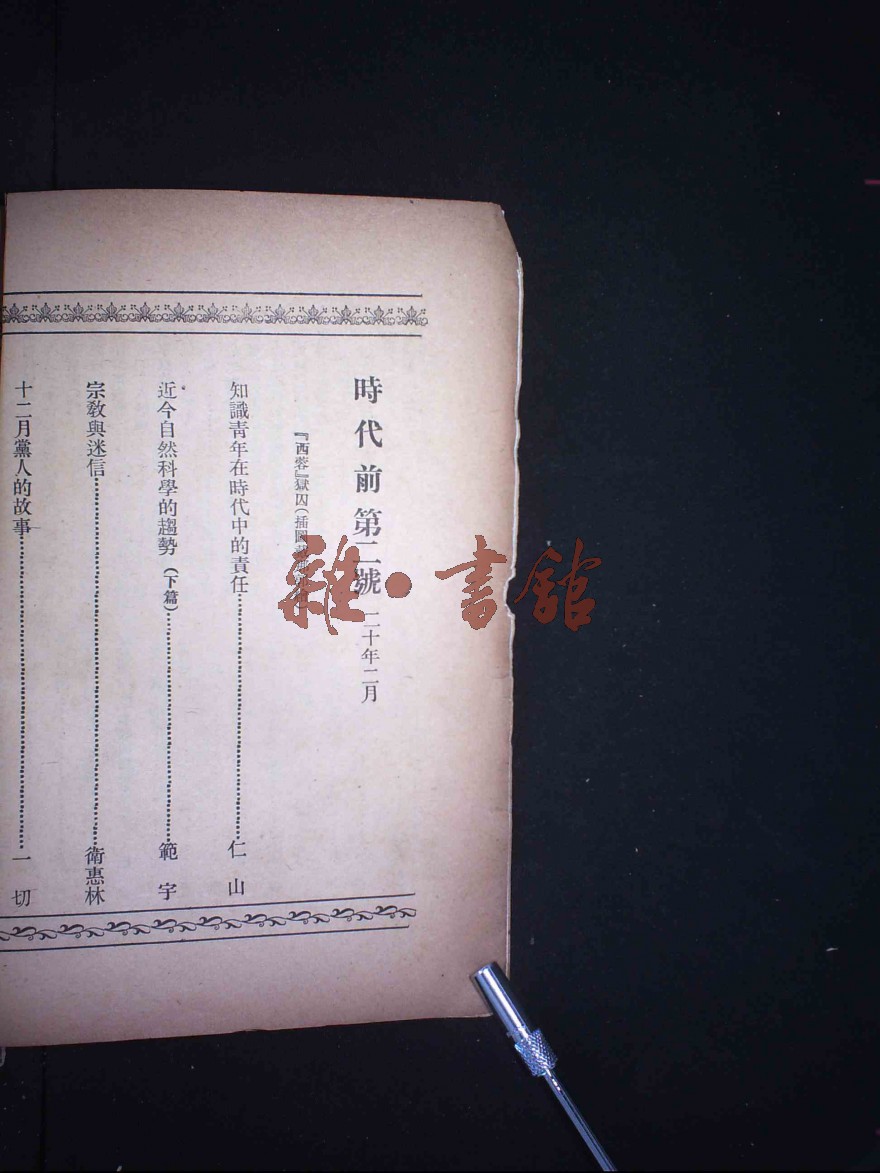 時代前第二號 二十年二月
『西蓉』獄囚(插圖
知識青年在時代中的責任……仁山
近今自然科學的趨勢(下篇)……範宇
宗教與迷信……衛惠林
十二月黨人的故事……一切
雜·書館